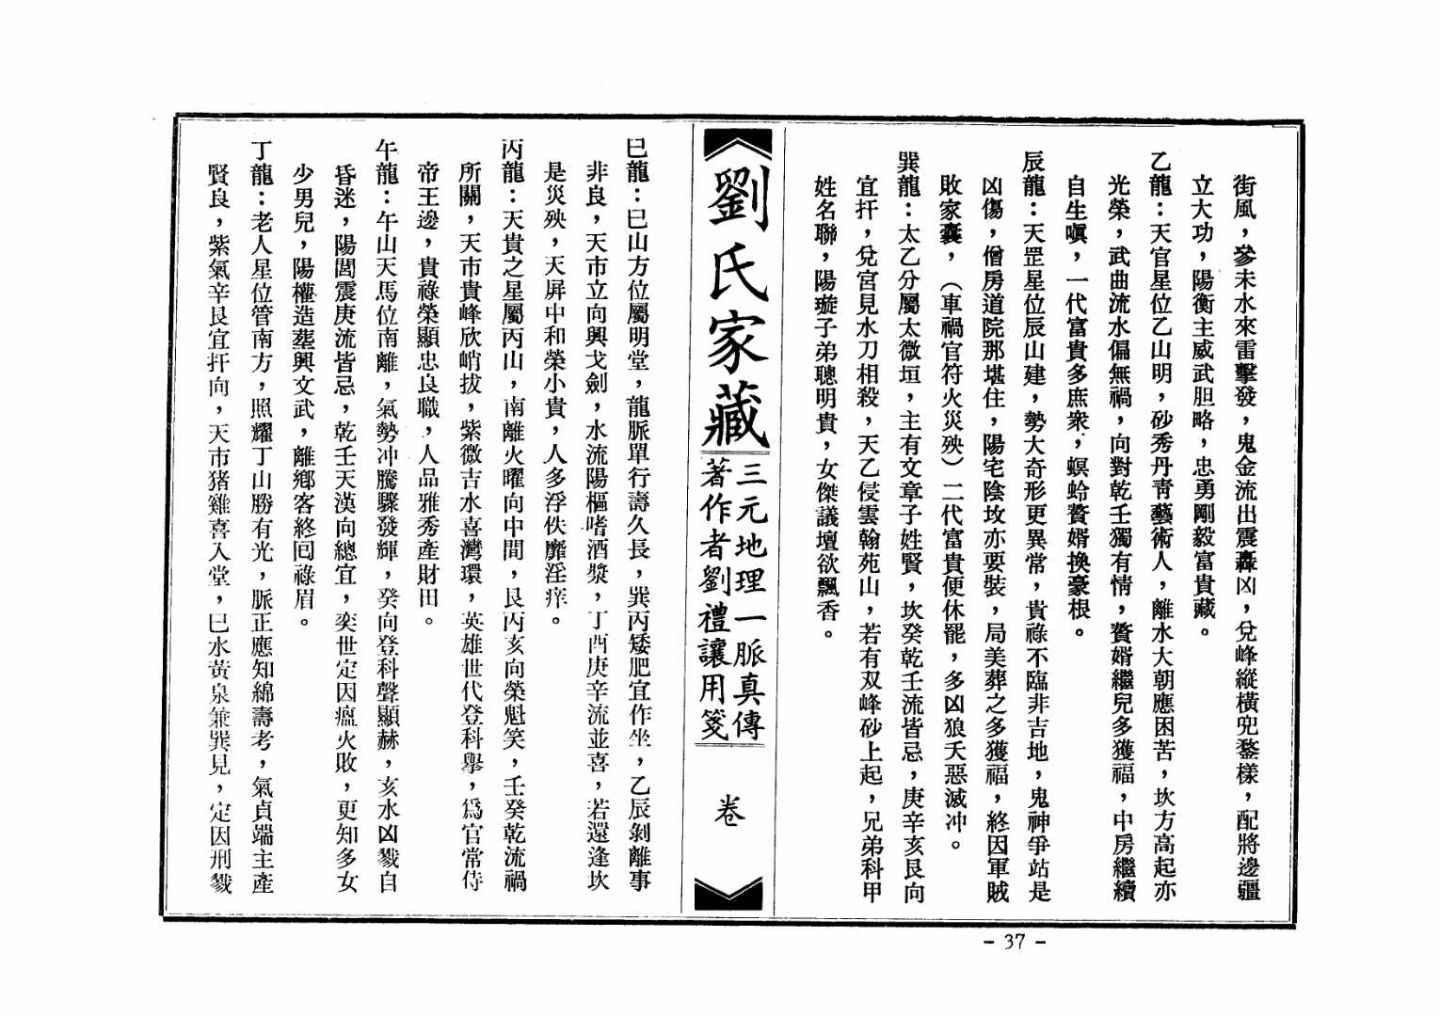 街風，參未水來雷擊發，鬼金流出震轟凶，兌峰縱橫兜鍪樣，配將邊疆
立大功，陽衡主威武胆略，忠勇剛毅富貴藏。
乙龍：天官星位乙山明，砂秀丹青藝術人，離水大朝應困苦，坎方高起亦
光榮，武曲流水偏無禍，向對乾壬獨有情，贅婿繼兒多獲福，中房繼續
自生嗔，一代富貴多庶衆，螟蛉贅婿換豪根。
辰龍：天罡星位辰山建，勢大奇形更異常，貴祿不臨非吉地，鬼神爭站是
凶傷，僧房道院那堪住，陽宅陰坟亦要裝，局美葬之多獲福，終因軍賊
敗家囊，（車禍官符火災殃）二代富貴便休罷，多凶狼夭惡滅冲。
巽龍：太乙分屬太微垣，主有文章子姓賢，坎癸乾壬流皆忌，庚辛亥艮向
宜扦，兌宮見水刀相殺，天乙侵雲翰苑山，若有双峰砂上起，兄弟科甲
姓名聯，陽璇子弟聰明貴，女傑議壇欲飄香。
劉氏家藏
三元地理一脈真傳
著作者劉禮讓用箋
卷
巳龍：巳山方位屬明堂，龍脈單行壽久長，巽丙矮肥宜作坐，乙辰剝離事
非良，天市立向興戈劍，水流陽樞嗜酒漿，丁酉庚辛流並喜，若還逢坎
是災殃，天屏中和榮小貴，人多浮佚靡淫痒。
丙龍：天貴之星屬丙山，南離火曜向中間，艮丙亥向榮魁笑，壬癸乾流禍
所關，天市貴峰欣峭拔，紫微吉水喜灣環，英雄世代登科舉，爲官常侍
帝王邊，貴祿榮顯忠良職，人品雅秀產財田。
午龍：午山天馬位南離，氣勢冲騰驟發輝，癸向登科聲顯赫，亥水凶戮自
昏迷，陽閭震庚流皆忌，乾壬天漢向總宜，奕世定因瘟火敗，更知多女
少男兒，陽權造塟興文武，離鄉客終回祿眉。
丁龍：老人星位管南方，照耀丁山勝有光，脈正應知綿壽考，氣貞端主產
賢良，紫氣辛艮宜扦向，天市猪雞喜入堂，巳水黃泉兼巽見，定因刑戮
- 37 -